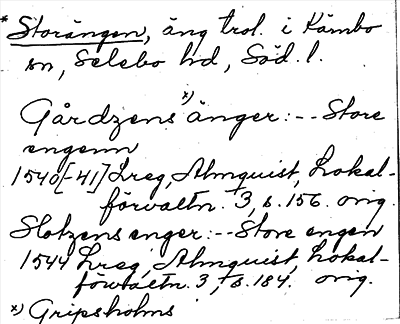 * Storängen, äng trol. i Kärnbo
sn, Selebo hd, Söd. l.
Gårdzens x) änger:-- Store
engenn
1540[-41] Lreg, Almquist, Lokal-
förvaltn. 3, s. 156. orig.
Slotzens enger:-- Store engen
1544 Lreg, Almquist, Lokal-
förvaltn. 3, s. 184. orig.
x) Gripsholms